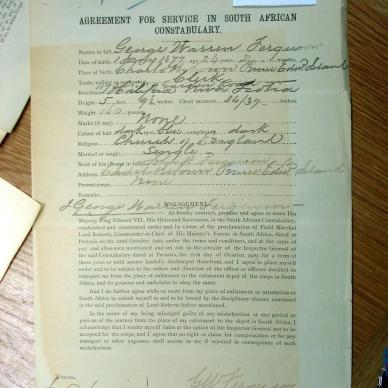 AGREEMENT FOR SERVICE IN SOUTH AFRICAN
CONSTABULARY.
Names in full, George Warren Ferguson
Date of birth, 1877 age 24
Place of birth, Charlottetown Prince Edw Island
Trade, calling Clerk
Residence Halifax Nova Scotia
Height, 5 feet 9½ inches. Chest measure 36/37 inches.
Weight
Marks (if any) None
Colour of hair dark eyes blue complexion dark
Religion Church of England
Married or single Single
Next of kin (Name in full)
Address Charlottetown Prince Edw Island
Present corps None
Remarks
ENGAGEMENT.
I George Warren Ferguson
do hereby contract, promise and agree to serve His
Majesty King Edward VII., His Heirs and Successors, in the South African Constabulary,
established and constituted under and by virtue of the proclamation of Field Marshal
Lord Roberts, Commander-in-Chief of His Majesty's Forces in South Africa, dated at
Pretoria on the 22nd October, 1900, under the terms and conditions, and at the rates of
pay and allowance mentioned and set out in the circular of the Inspector General of
the said Constabulary dated at Pretoria, the October, 1900, for a term of
three years or until sooner lawfully discharged therefrom, and I agree to place myself
under and to be subject to the orders and direction of the officer or officers detailed to
transport me from the place of enlistment to the enlistment depot of the corps in South
Africa, and do promise and undertake to obey the same.
And I do further agree while en route from my place of enlistment or attestation to
South Africa to submit myself to and to be bound by the disciplinary clauses contained
in the said proclamation of Lord Roberts before mentioned.
In the event of my being adjudged guilty of any misbehaviour at any period or
portion of the journey from the place of my enlistment to the depot in South Africa, I
acknowledge that I render myself liable at the option of the Inspector General not to be
accepted for the corps, and I agree that no right or claim for compensation or for any
transport or other expenses shall accrue to me if rejected in consequence of such
misbehaviour.
Witness,